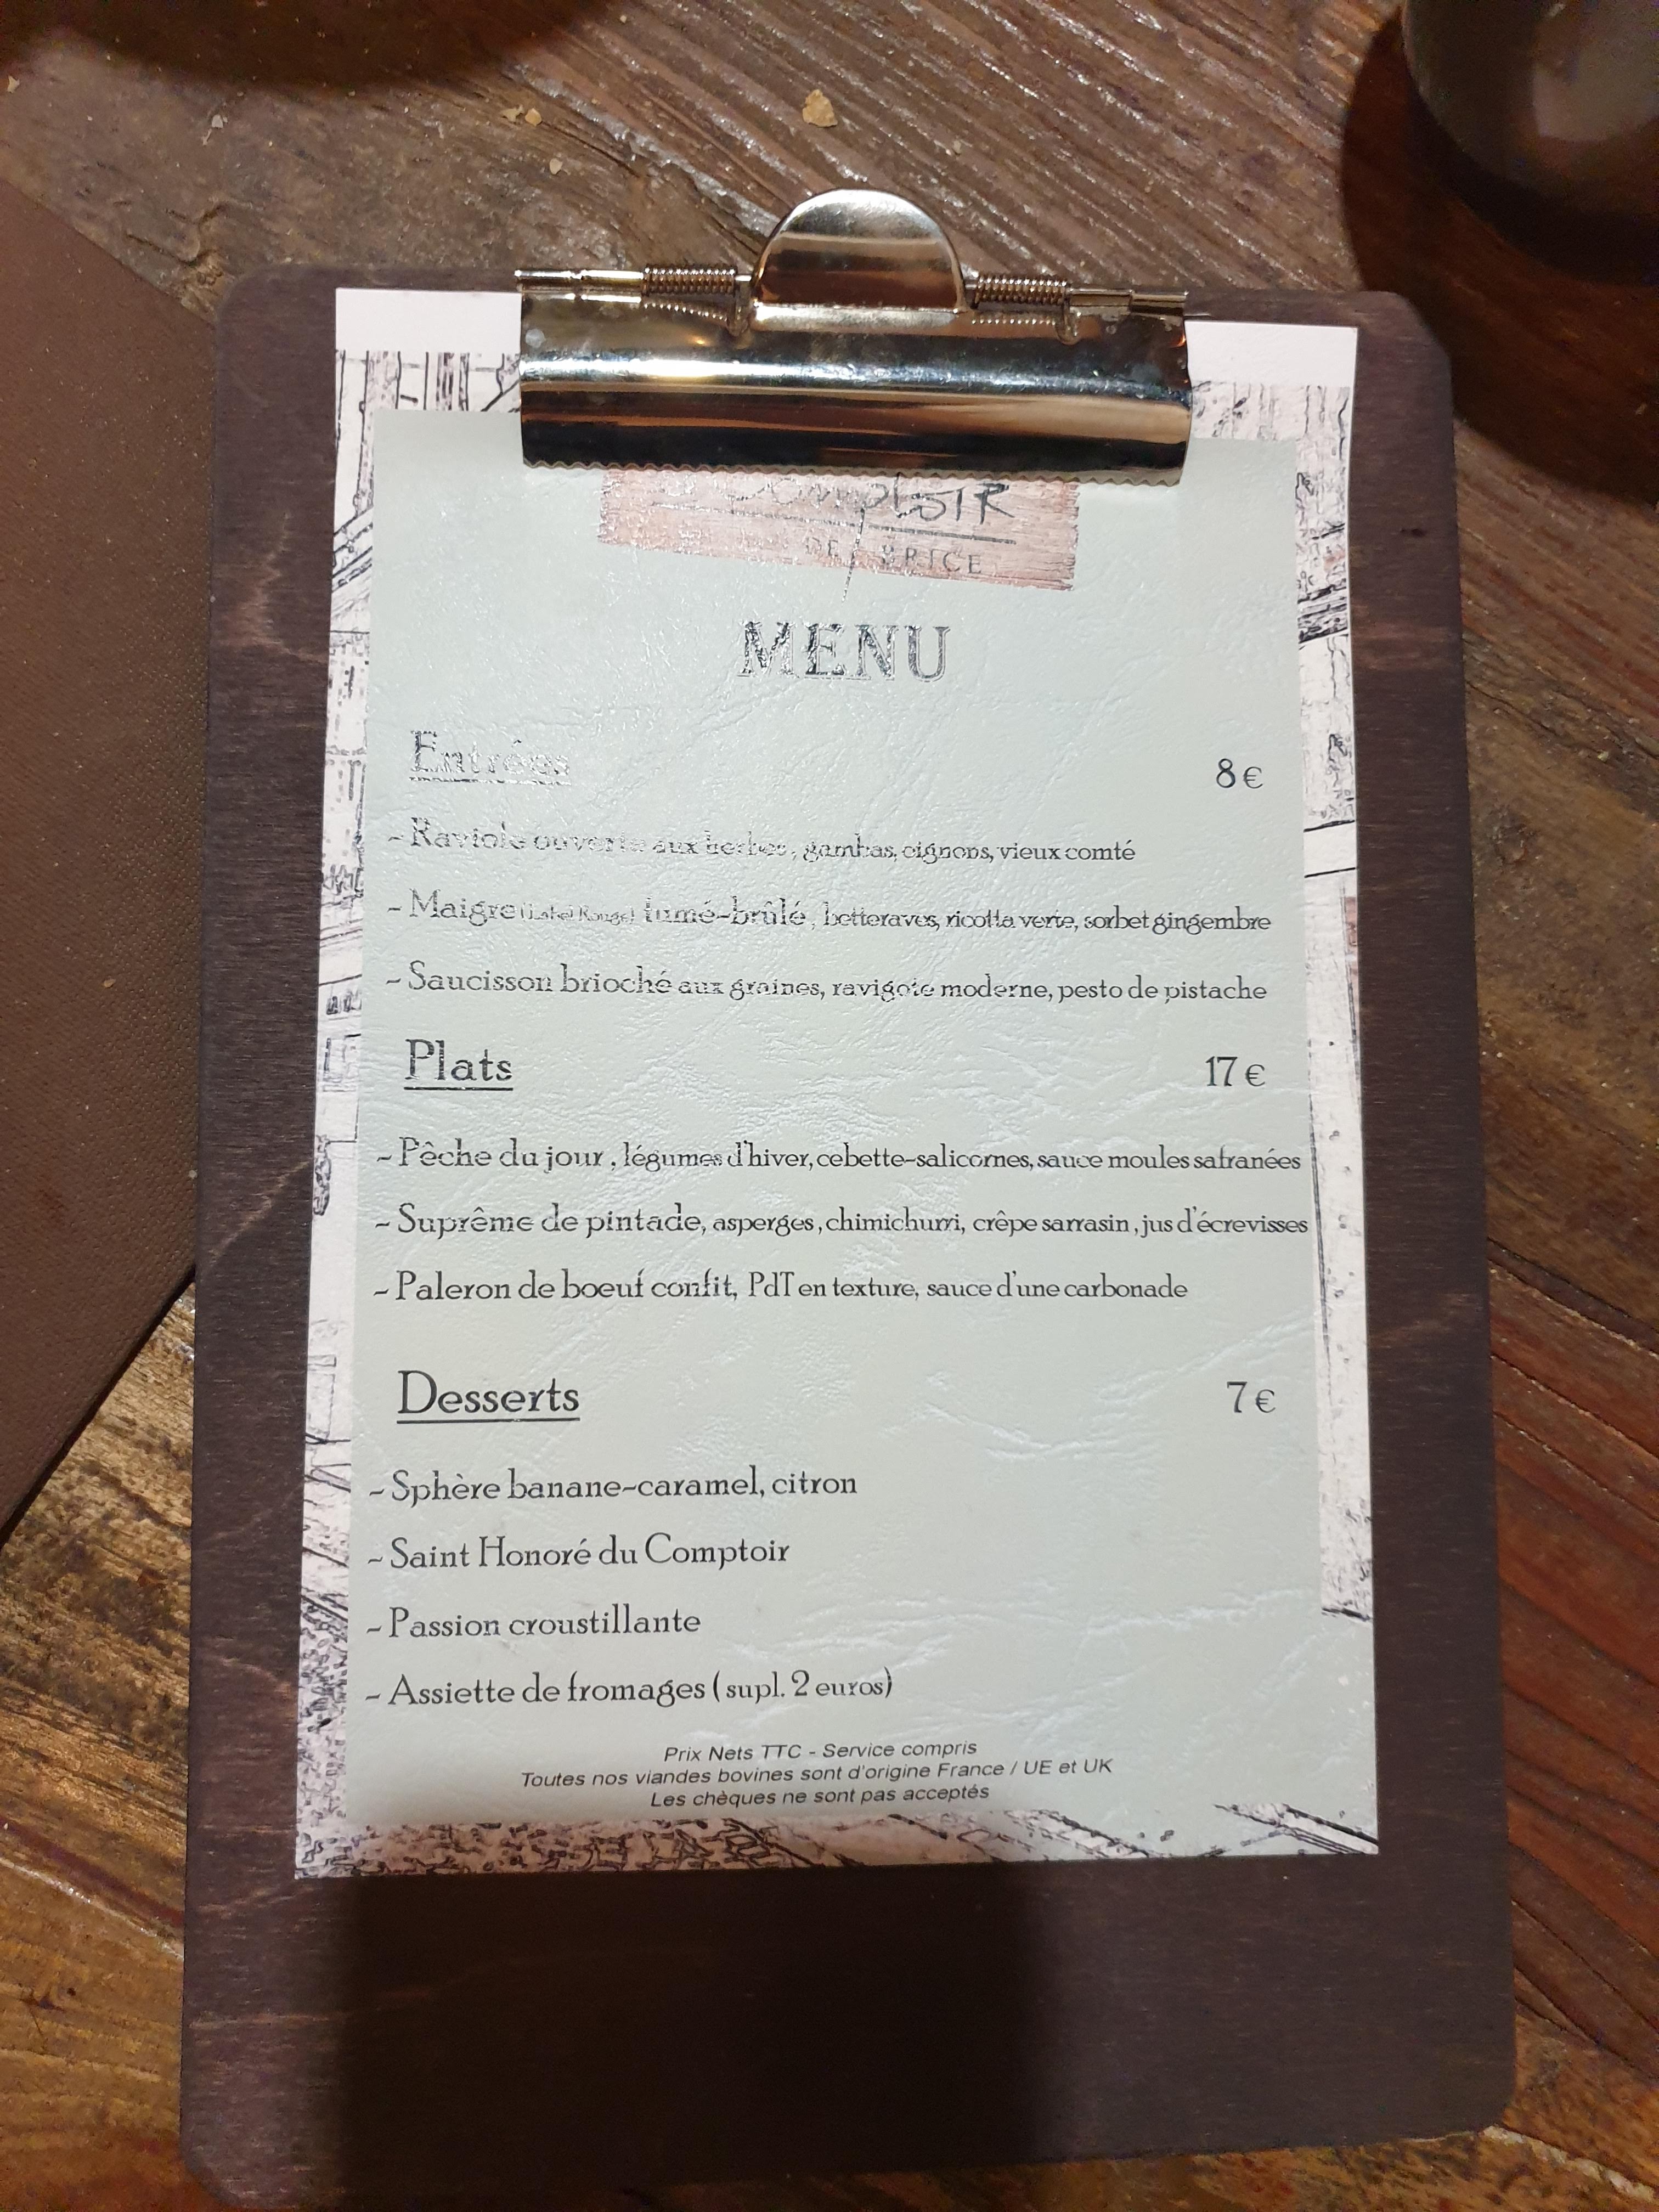 Comptoir
DE BRICE
MENU
Entrées 8 €
- Raviole ouverte aux herbes, gambas, oignons, vieux comté
- Maigre (Label Rouge) fumé-brûlé, betteraves, ricotta verte, sorbet gingembre
- Saucisson brioché aux graines, ravigote moderne, pesto de pistache
Plats 17 €
- Pêche du jour, légumes d'hiver, cebette-salicornes, sauce moules safranées
- Suprême de pintade, asperges, chimichurri, crêpe sarrasin, jus d'écrevisses
- Paleron de boeuf confit, PdT en texture, sauce d'une carbonade
Desserts 7 €
- Sphère banane-caramel, citron
- Saint Honoré du Comptoir
- Passion croustillante
- Assiette de fromages ( supl. 2 euros)
Prix Nets TTC - Service compris
Toutes nos viandes bovines sont d'origine France / UE et UK
Les chèques ne sont pas acceptés